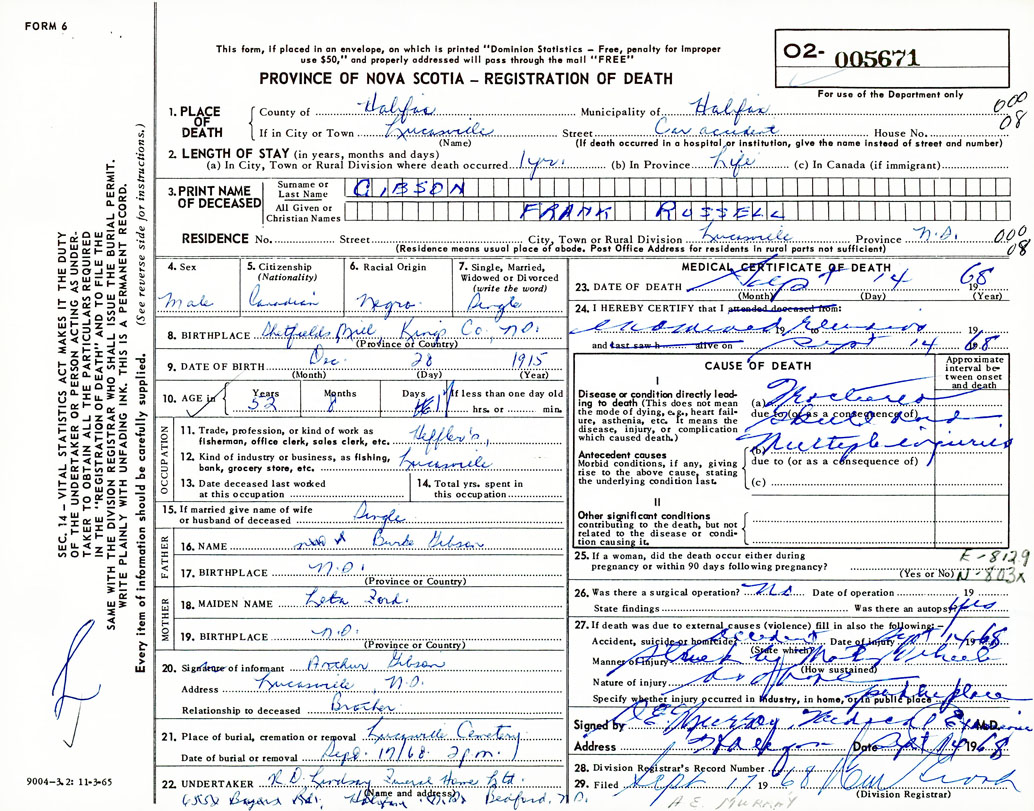 FORM 6
This form, if placed in an envelope, on which is printed "Dominion Statistics – Free, penalty for improper
use $50," and properly addressed will pass through the mail "FREE"
O2- 005671
For use of the Department only
PROVINCE OF NOVA SCOTIA – REGISTRATION OF DEATH
1. PLACE OF DEATH
County of Halifax Municipality of Halifax 000
If in City or Town Lucasville Street Car accident House No. 08
(Name) (If death occurred in a hospital or institution, give the name instead of street and number)
2. LENGTH OF STAY (in years, months and days)
(a) In City, Town or Rural Division where death occurred 1 yr. (b) In Province Life (c) In Canada (if immigrant)
3. PRINT NAME OF DECEASED
Surname or Last Name GIBSON
All Given or Christian Names FRANK RUSSELL
RESIDENCE No. Street City, Town or Rural Division Lucasville Province N.S. 000
(Residence means usual place of abode. Post Office Address for residents in rural parts not sufficient) 08
4. Sex
Male
5. Citizenship
(Nationality)
Canadian
6. Racial Origin
Negro
7. Single, Married,
Widowed or Divorced
(write the word)
Single
8. BIRTHPLACE Mill Kings Co. N.S.
(Province or Country)
9. DATE OF BIRTH Dec. 28 1915
(Month) (Day) (Year)
10. AGE in Years 52 Months 8 Days If less than one day old
hrs. or min.
OCCUPATION
11. Trade, profession, or kind of work as
fisherman, office clerk, sales clerk, etc. Heffler's,
12. Kind of industry or business, as fishing,
bank, grocery store, etc. Lucasville
13. Date deceased last worked
at this occupation
14. Total yrs. spent in
this occupation
15. If married give name of wife
or husband of deceased Single
FATHER
16. NAME Burke Gibson
17. BIRTHPLACE N.S.
(Province or Country)
MOTHER
18. MAIDEN NAME Leta Ford.
19. BIRTHPLACE N.S.
(Province or Country)
20. Signature of informant Arthur Gibson
Address Lucasville N.S.
Relationship to deceased Brother
21. Place of burial, cremation or removal Lucasville Cemetery
Date of burial or removal Sept. 17/68 2 p.m.
22. UNDERTAKER Funeral Home Ltd.
(Name and address)
Bayers Rd. Halifax N.S. Bedford, N.S.
MEDICAL CERTIFICATE OF DEATH
23. DATE OF DEATH Sept 14 1968
(Month) (Day) (Year)
24. I HEREBY CERTIFY that I attended deceased from:
examined 19 remains 19
and last saw h alive on Sept 14 1968
CAUSE OF DEATH
Approximate
interval be-
tween onset
and death
I
Disease or condition directly lead-
ing to death (This does not mean
the mode of dying, e.g., heart fail-
ure, asthenia, etc. It means the
disease, injury, or complication
which caused death.)
(a) Fractured
due to (or as a consequence of)
Skull and
(b) Multiple injuries
due to (or as a consequence of)
(c)
Antecedent causes
Morbid conditions, if any, giving
rise to the above cause, stating
the underlying condition last.
II
Other significant conditions
contributing to the death, but not
related to the disease or condi-
tion causing it.
25. If a woman, did the death occur either during
pregnancy or within 90 days following pregnancy?
(Yes or No)
E-8129
N-803X
26. Was there a surgical operation? No Date of operation 19
State findings Was there an autopsy? Yes
27. If death was due to external causes (violence) fill in also the following:–
Accident, suicide or homicide? Accident Date of injury Sept 14 1968
(State which)
Manner of injury Struck by Motor Vehicle
(How sustained)
Nature of injury as above
Specify whether injury occurred in industry, in home, or in public place public place
Signed by Murray, Medical Examiner M.D.
Address Halifax Date Sept 14 1968
28. Division Registrar's Record Number
29. Filed Sept 17 1968
(Division Registrar)
A E. MURRAY
SEC. 14 – VITAL STATISTICS ACT MAKES IT THE DUTY
OF THE UNDERTAKER OR PERSON ACTING AS UNDER-
TAKER TO OBTAIN ALL THE PARTICULARS REQUIRED
IN THE "REGISTRATION OF DEATH" AND TO FILE THE
SAME WITH THE DIVISION REGISTRAR WHO SHALL ISSUE THE BURIAL PERMIT.
WRITE PLAINLY WITH UNFADING INK. THIS IS A PERMANENT RECORD.
Every item of information should be carefully supplied. (See reverse side for instructions.)
9004-3.2: 11-3-65